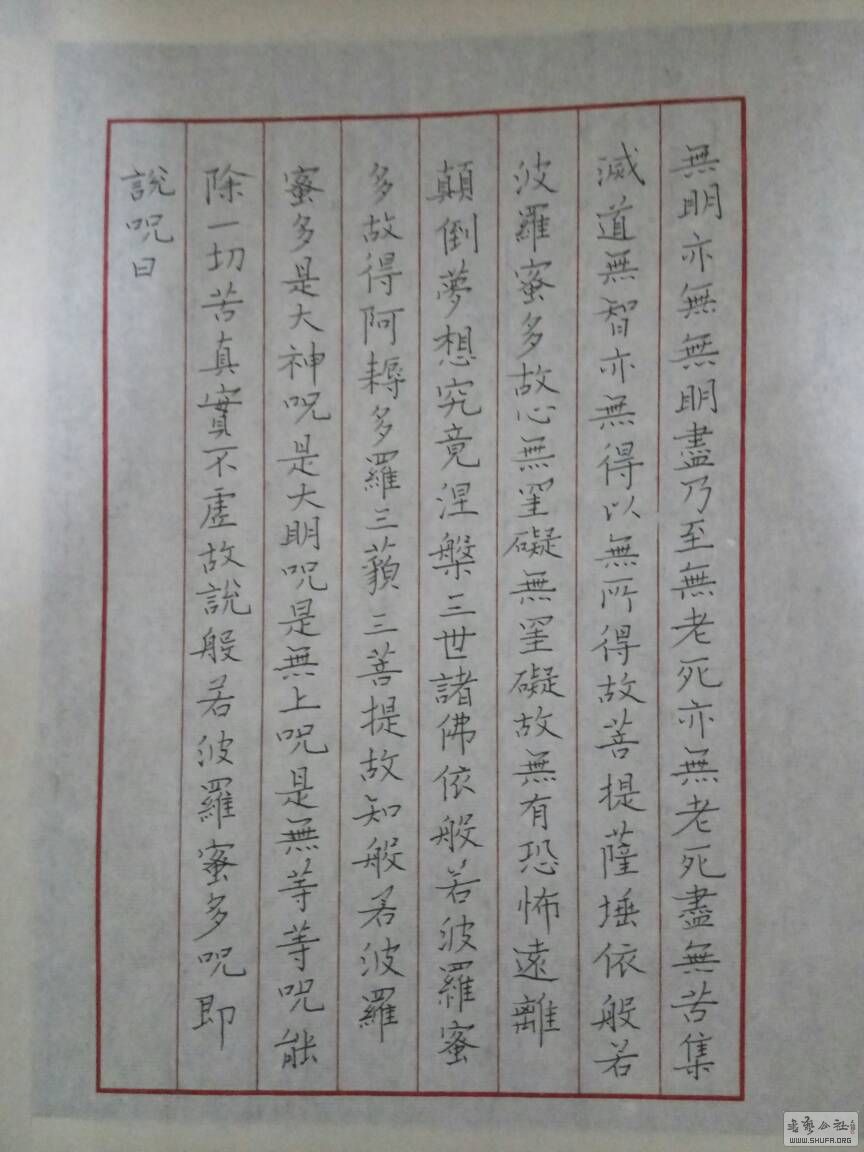 無明亦無無明盡乃至無老死亦無老死盡無苦集
滅道無智亦無得以無所得故菩提薩埵依般若
波羅蜜多故心無罣礙無罣礙故無有恐怖遠離
顛倒夢想究竟涅槃三世諸佛依般若波羅蜜
多故得阿耨多羅三藐三菩提故知般若波羅
蜜多是大神咒是大明咒是無上咒是無等等咒能
除一切苦真實不虛故說般若波羅蜜多咒即
說咒曰
书艺公社
WWW.SHUFA.ORG